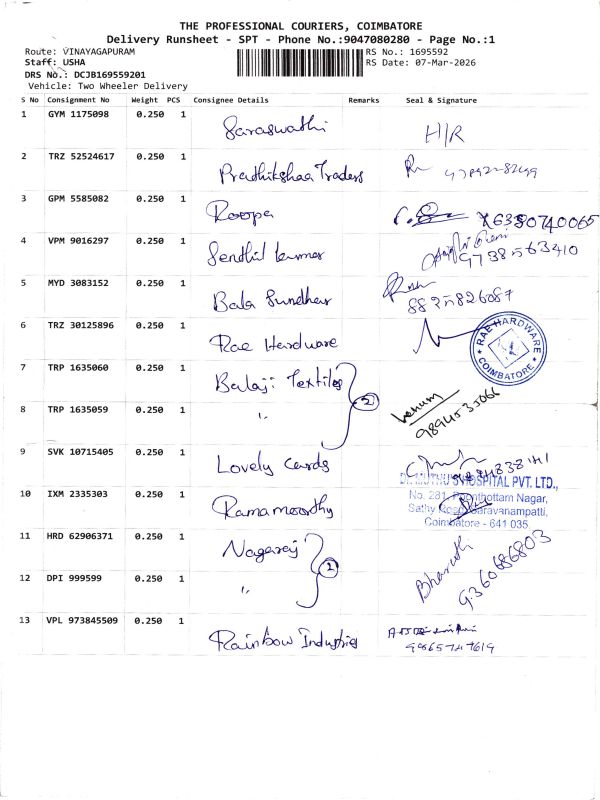 THE PROFESSIONAL COURIERS, COIMBATORE
Delivery Runsheet - SPT - Phone No.:9047080280 - Page No.:1
Route: VINAYAGAPURAM
RS No.: 1695592
Staff: USHA
RS Date: 07-Mar-2026
DRS No.: DCJB169559201
Vehicle: Two Wheeler Delivery
S No Consignment No Weight PCS Consignee Details Remarks Seal & Signature
1 GYM 1175098 0.250 1 Saraswathi H/R
2 TRZ 52524617 0.250 1 Prathikshaa Traders
3 GPM 5585082 0.250 1 Roopa X6380740065
4 VPM 9016297 0.250 1 Senthil kumar 9738563410
5 MYD 3083152 0.250 1 Bala Sundhar 8825826087
6 TRZ 30125896 0.250 1 Rae Hardware
RAE HARDWARE
COIMBATORE
7 TRP 1635060 0.250 1 Balaji Textiles
2
8 TRP 1635059 0.250 1 "
9894535066
9 SVK 10715405 0.250 1 Lovely Cards
HOSPITAL PVT. LTD.,
10 IXM 2335303 0.250 1 Ramamoorthy
No. 281, Poonthottam Nagar,
Sathy Road, Saravanampatti,
Coimbatore - 641 035
11 HRD 62906371 0.250 1 Nagaraj
2
12 DPI 999599 0.250 1 "
Bharathi
9360686803
13 VPL 973845509 0.250 1 Rainbow Industries
9865747619